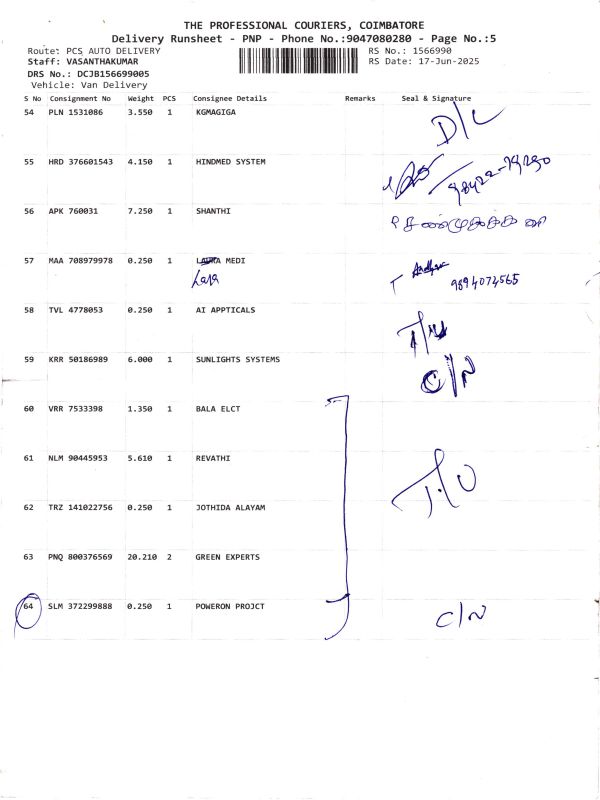 THE PROFESSIONAL COURIERS, COIMBATORE
Delivery Runsheet - PNP - Phone No.:9047080280 - Page No.:5
Route: PCS AUTO DELIVERY
RS No.: 1566990
Staff: VASANTHAKUMAR
RS Date: 17-Jun-2025
DRS No.: DCJB156699005
Vehicle: Van Delivery
S No Consignment No Weight PCS Consignee Details Remarks Seal & Signature
54 PLN 1531086 3.550 1 KGMAGIGA D/L
55 HRD 376601543 4.150 1 HINDMED SYSTEM
56 APK 760031 7.250 1 SHANTHI
57 MAA 708979978 0.250 1 MEDI
Lara 9894072565
58 TVL 4778053 0.250 1 AI APPTICALS
59 KRR 50186989 6.000 1 SUNLIGHTS SYSTEMS C/N
60 VRR 7533398 1.350 1 BALA ELCT
61 NLM 90445953 5.610 1 REVATHI
62 TRZ 141022756 0.250 1 JOTHIDA ALAYAM
63 PNQ 800376569 20.210 2 GREEN EXPERTS
64 SLM 372299888 0.250 1 POWERON PROJCT C/N